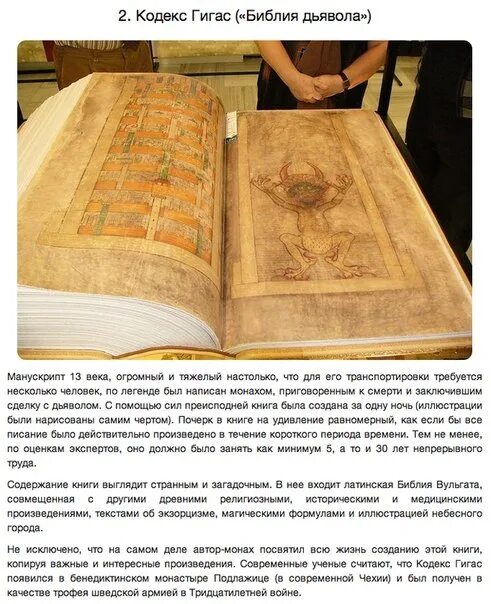 2. Кодекс Гигас («Библия дьявола»)
Манускрипт 13 века, огромный и тяжелый настолько, что для его транспортировки требуется
несколько человек, по легенде был написан монахом, приговоренным к смерти и заключившим
сделку с дьяволом. С помощью сил преисподней книга была создана за одну ночь (иллюстрации
были нарисованы самим чертом). Почерк в книге на удивление равномерный, как если бы все
писание было действительно произведено в течение короткого периода времени. Тем не менее,
по оценкам экспертов, оно должно было занять как минимум 5, а то и 30 лет непрерывного
труда.
Содержание книги выглядит странным и загадочным. В нее входит латинская Библия Вульгата,
совмещенная с другими древними религиозными, историческими и медицинскими
произведениями, текстами об экзорцизме, магическими формулами и иллюстрацией небесного
города.
Не исключено, что на самом деле автор-монах посвятил всю жизнь созданию этой книги,
копируя важные и интересные произведения. Современные ученые считают, что Кодекс Гигас
появился в бенедиктинском монастыре Подлажице (в современной Чехии) и был получен в
качестве трофея шведской армией в Тридцатилетней войне.